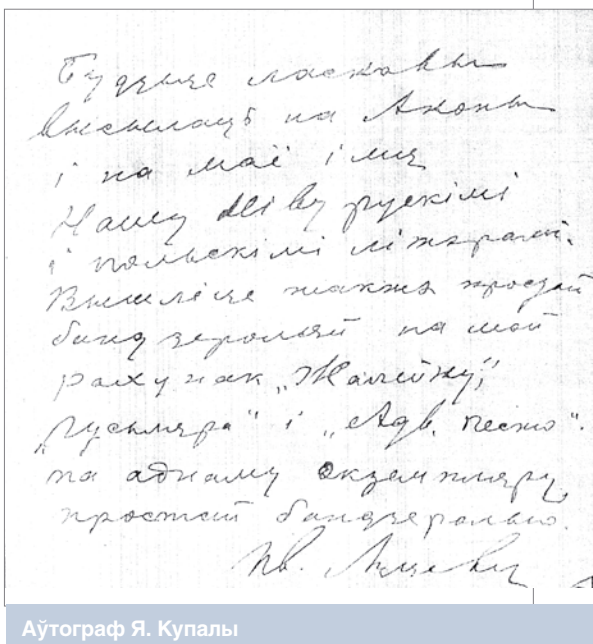 Будзьце ласкавы
высылаць на Акопы
і на маё імя
Нашу Ніву рускімі
і польскімі літэрамі.
Вышліце такжэ простай
бандэроляй на мой
рахунак „Жалейку”,
„Гусьляра” і „Адв. песню”.
па аднаму экземпляру,
простай бандэролью.
Ів. Луцевіч
Аўтограф Я. Купалы